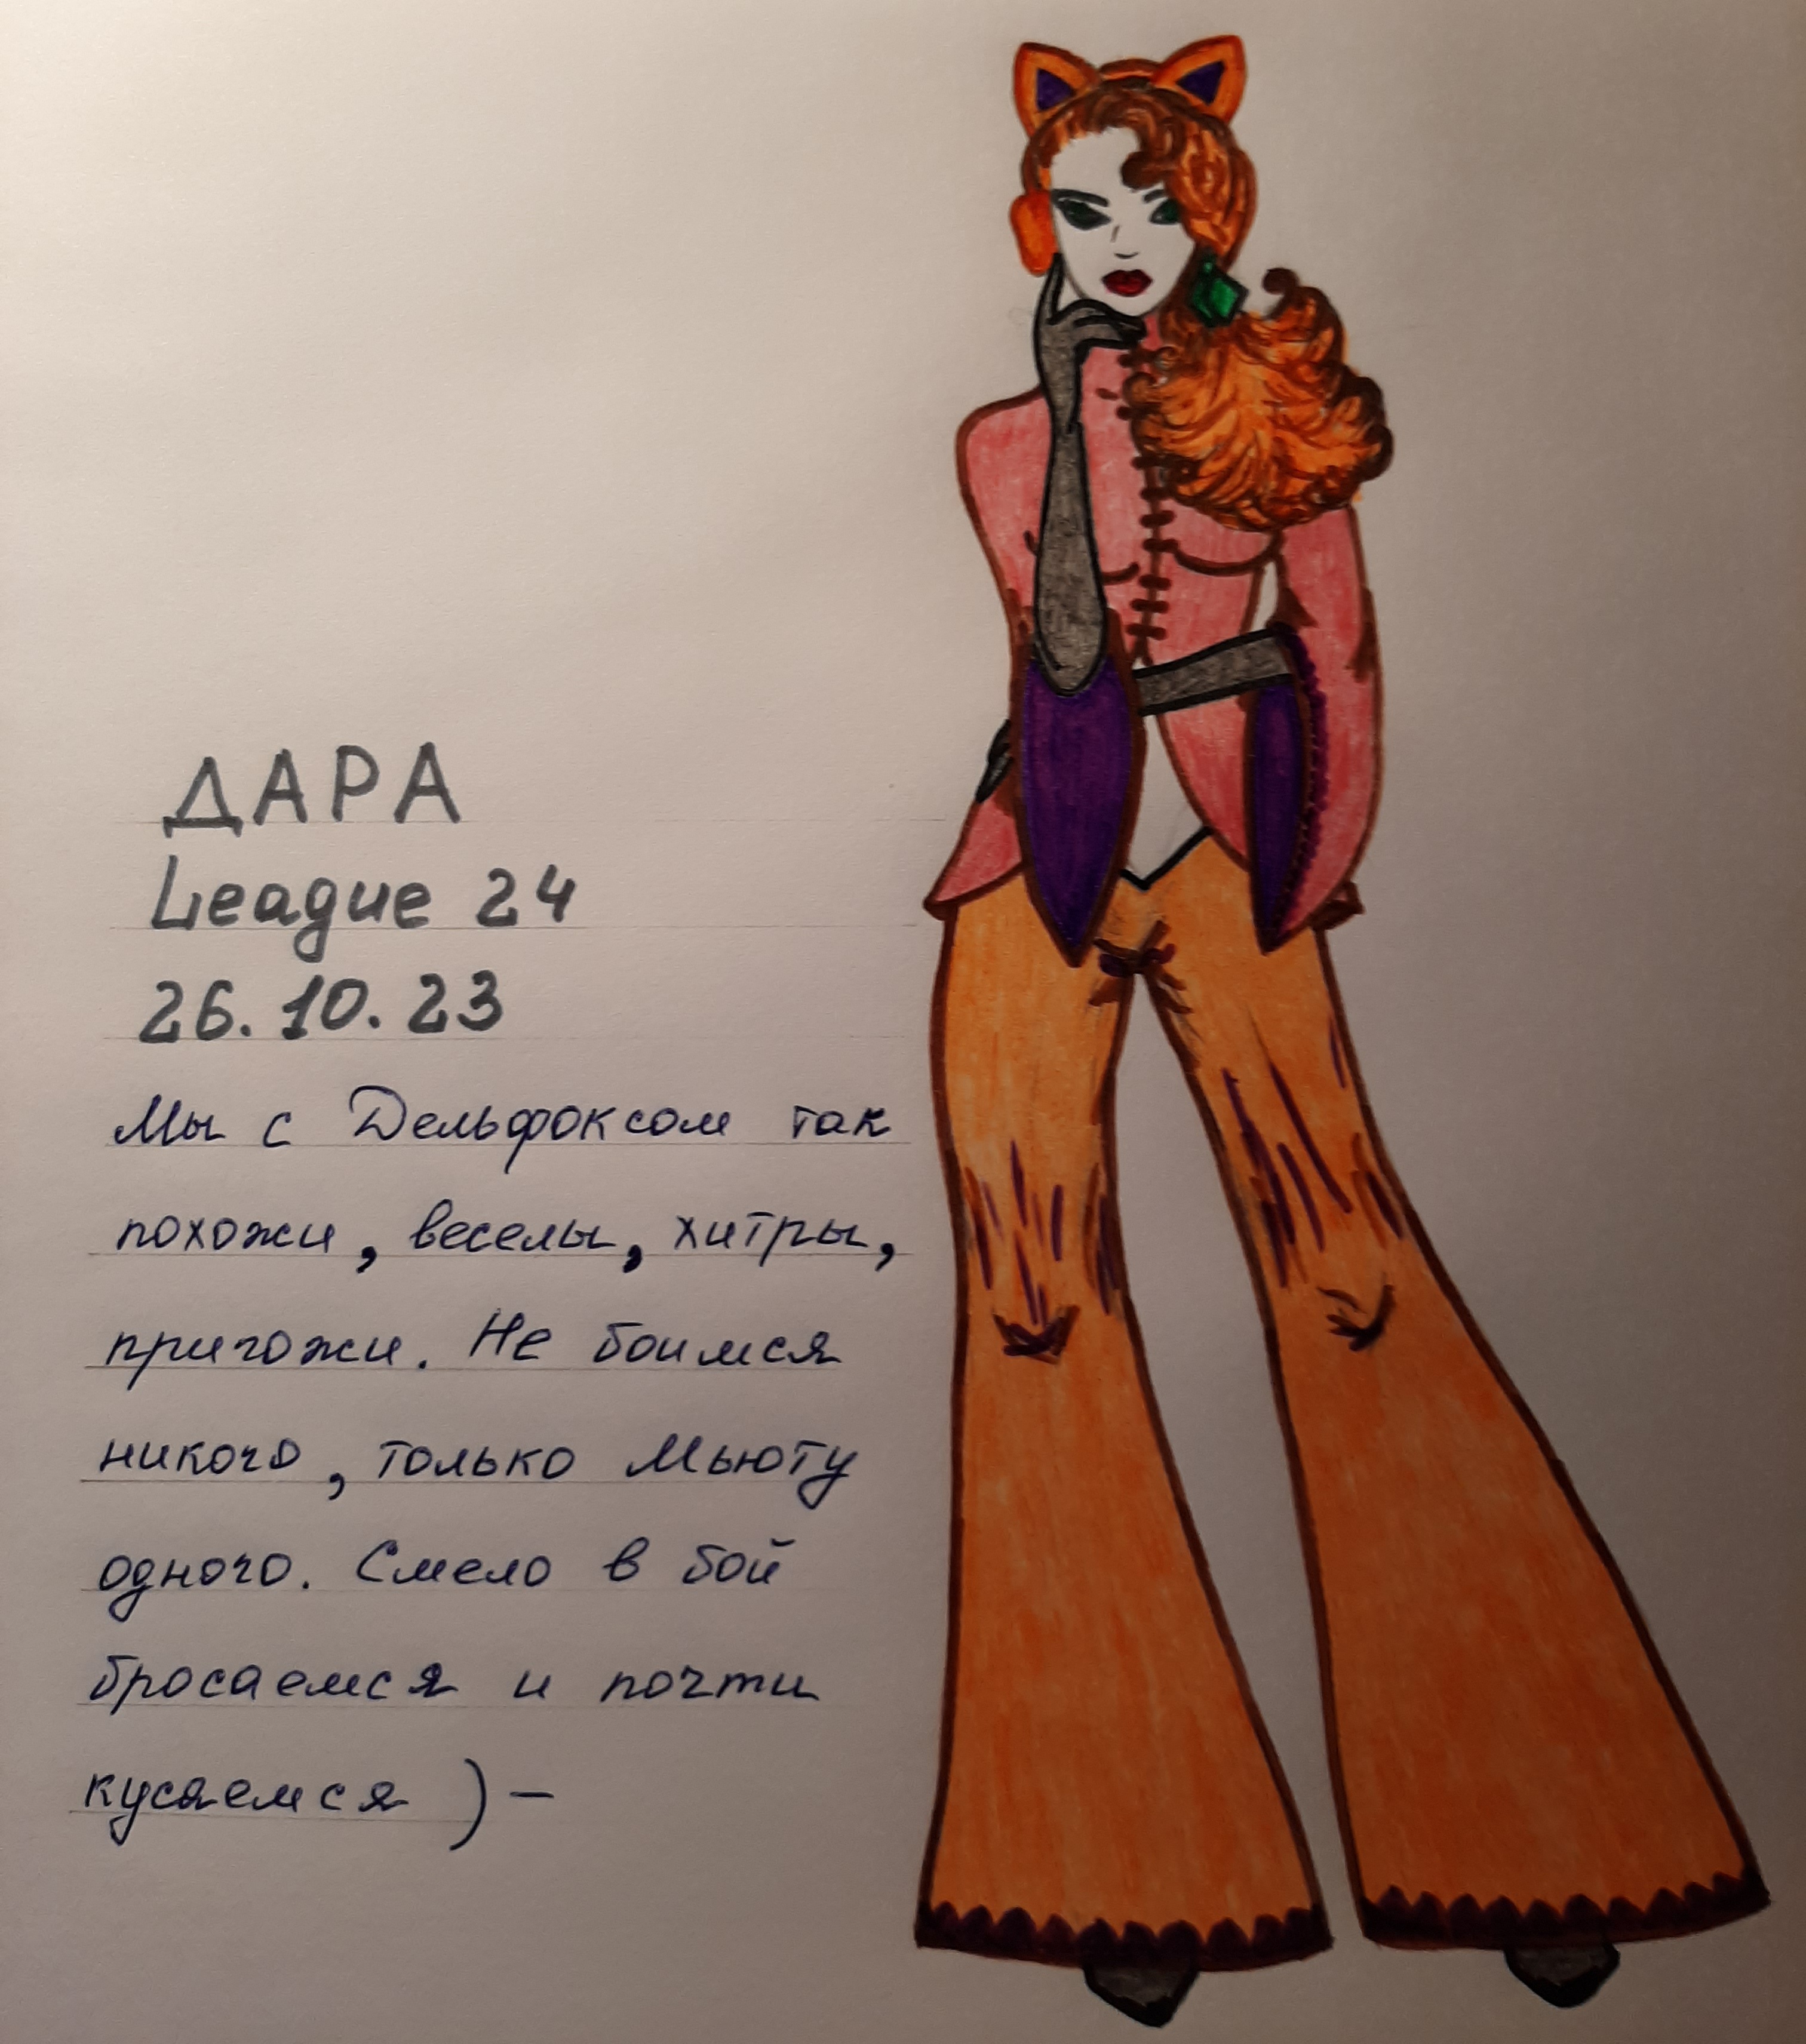 ДАРА
League 24
26.10.23
Мы с Дельфоксом так
похожи, веселы, хитры,
пригожи. Не боимся
никого, только Мьюту
одного. Смело в бой
бросаемся и почти
кусаемся )-